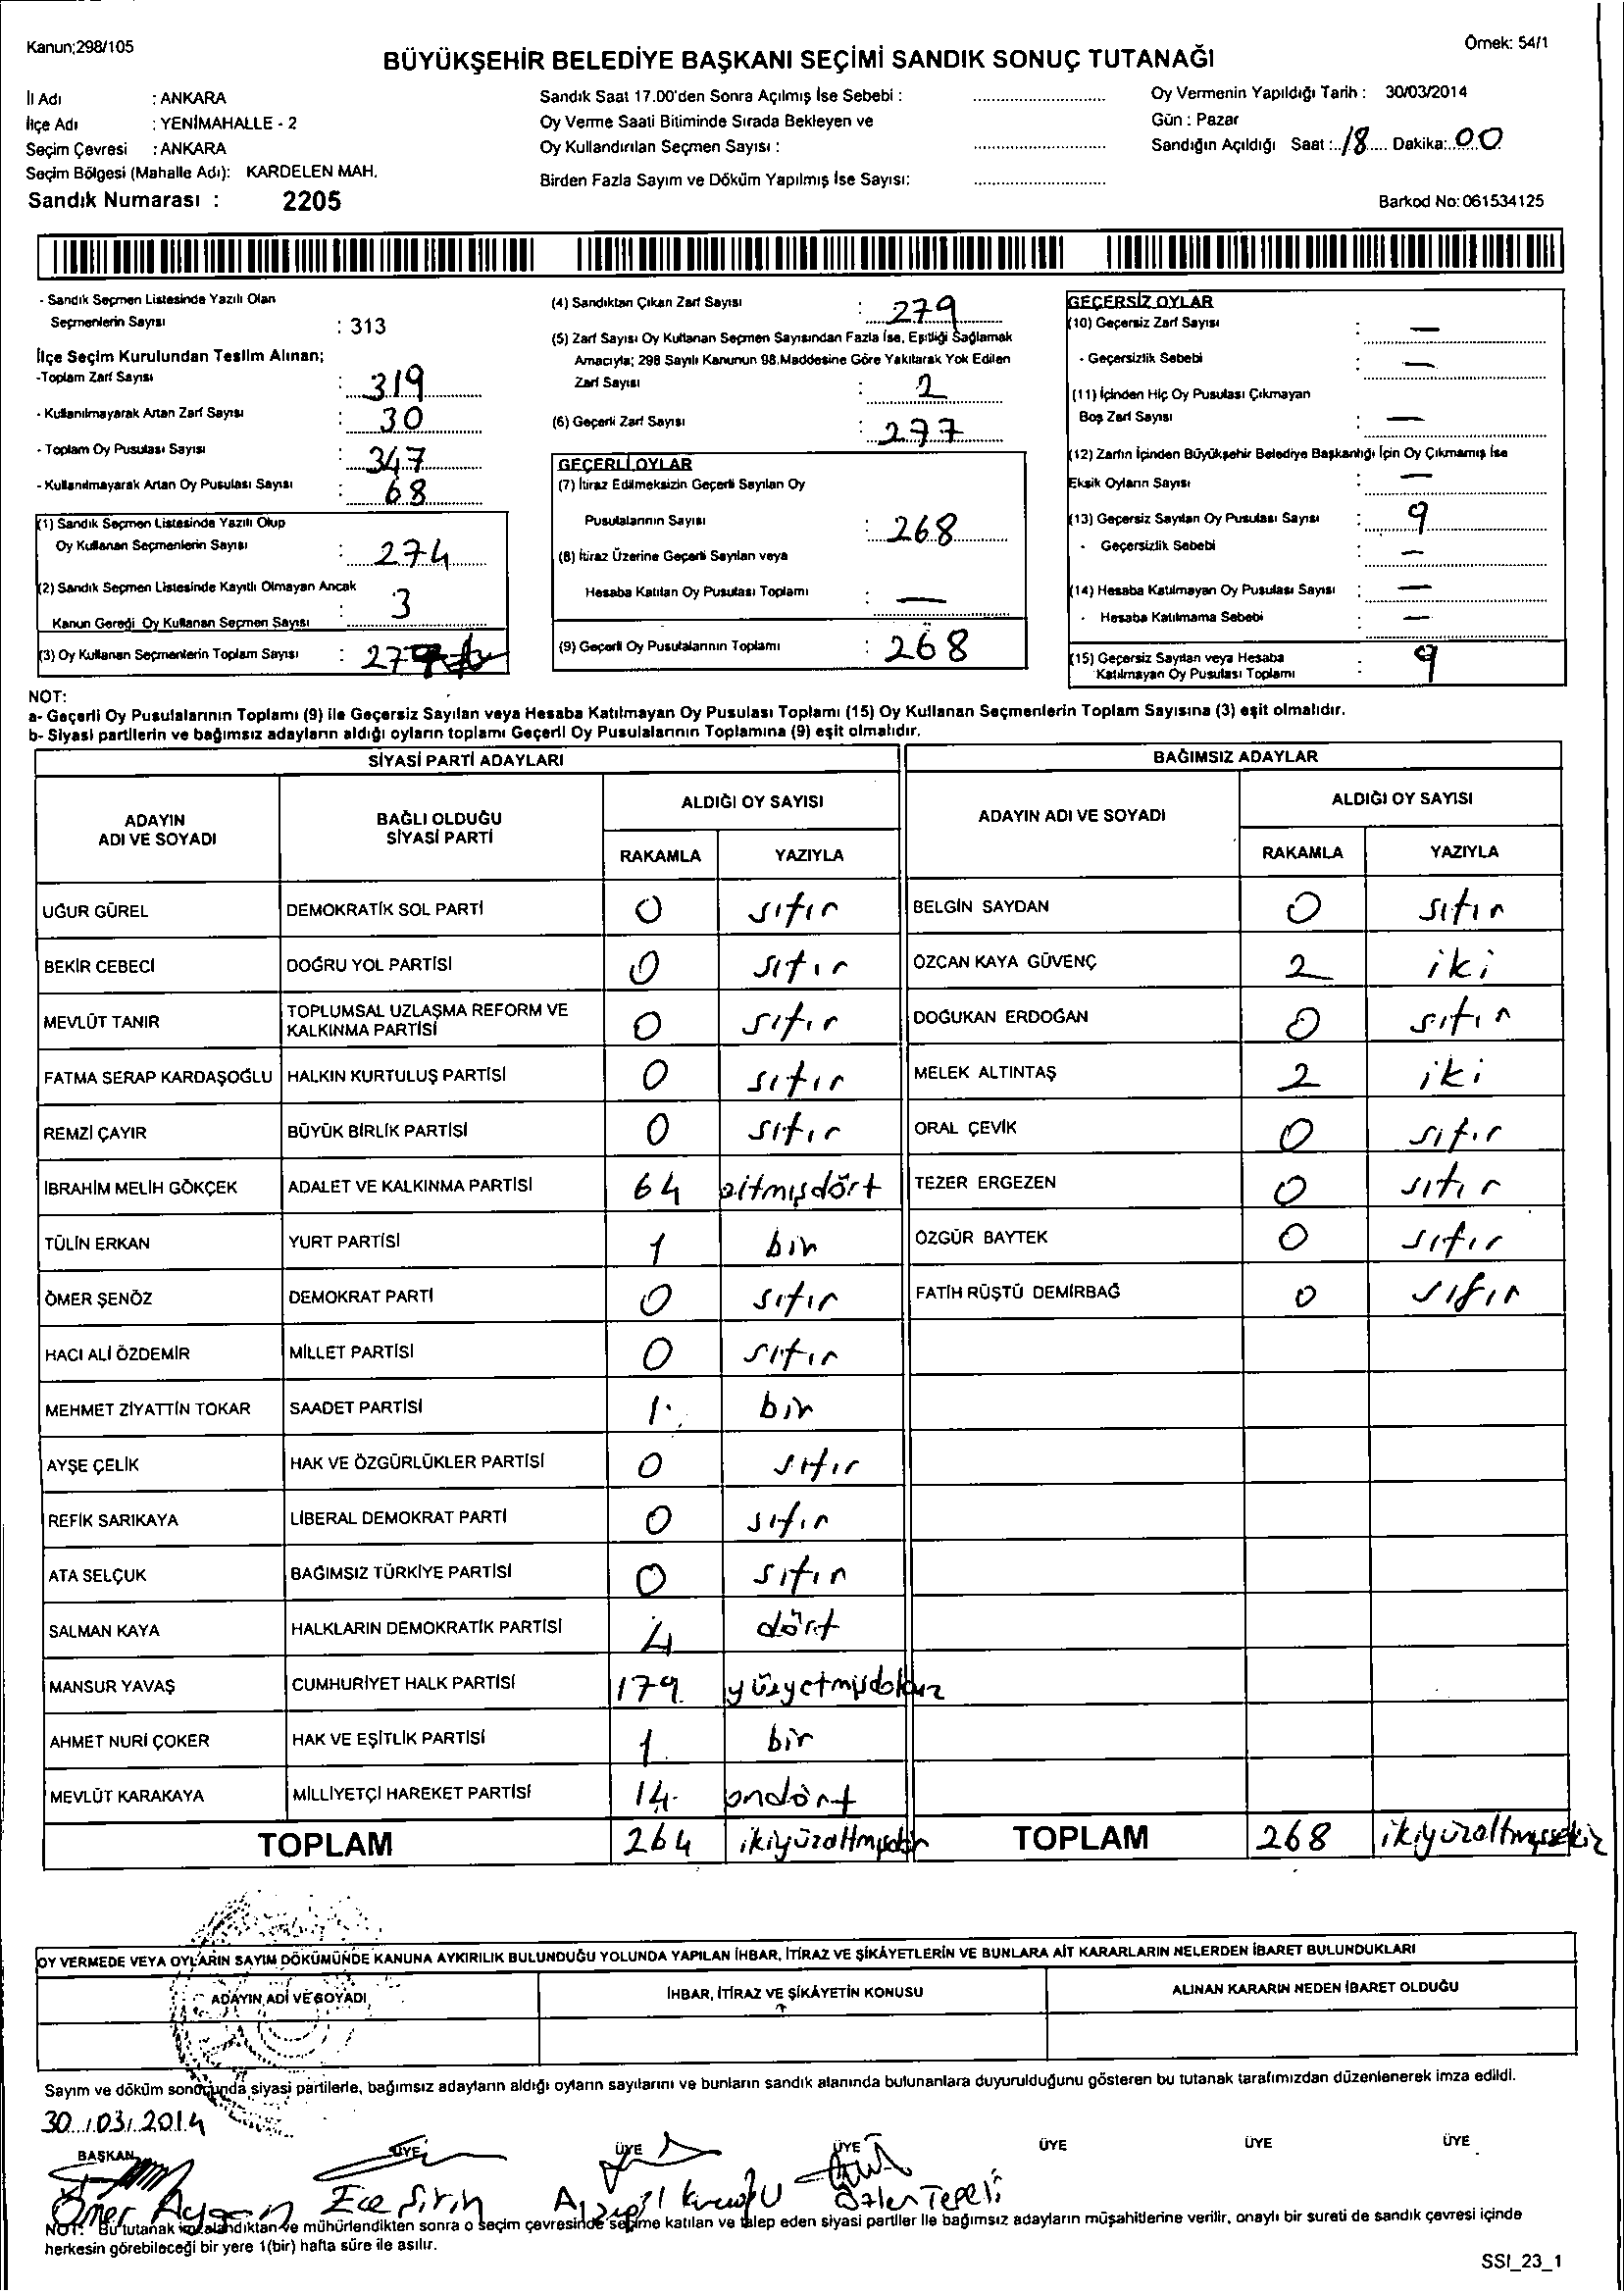 Kanun;298/105
Örnek: 54/1
BÜYÜKŞEHİR BELEDİYE BAŞKANI SEÇİMİ SANDIK SONUÇ TUTANAĞI
İl Adı : ANKARA
İlçe Adı : YENİMAHALLE - 2
Seçim Çevresi : ANKARA
Seçim Bölgesi (Mahalle Adı): KARDELEN MAH.
Sandık Numarası : 2205
Sandık Saat 17.00'den Sonra Açılmış İse Sebebi :
Oy Verme Saati Bitiminde Sırada Bekleyen ve
Oy Kullandırılan Seçmen Sayısı :
Birden Fazla Sayım ve Döküm Yapılmış İse Sayısı:
Oy Vermenin Yapıldığı Tarih : 30/03/2014
Gün : Pazar
Sandığın Açıldığı Saat : 18 Dakika: 00
Barkod No: 061534125
- Sandık Seçmen Listesinde Yazılı Olan
Seçmenlerin Sayısı : 313
İlçe Seçim Kurulundan Teslim Alınan;
-Toplam Zarf Sayısı : 319
- Kullanılmayarak Artan Zarf Sayısı : 30
- Toplam Oy Pusulası Sayısı : 347
- Kullanılmayarak Artan Oy Pusulası Sayısı : 68
(1) Sandık Seçmen Listesinde Yazılı Olup
Oy Kullanan Seçmenlerin Sayısı : 274
(2) Sandık Seçmen Listesinde Kayıtlı Olmayan Ancak
Kanun Gereği Oy Kullanan Seçmen Sayısı : 3
(3) Oy Kullanan Seçmenlerin Toplam Sayısı :
(4) Sandıktan Çıkan Zarf Sayısı : 279
(5) Zarf Sayısı Oy Kullanan Seçmen Sayısından Fazla İse, Eşitliği Sağlamak
Amacıyla; 298 Sayılı Kanunun 98.Maddesine Göre Yakılarak Yok Edilen
Zarf Sayısı : 2
(6) Geçerli Zarf Sayısı : 277
GEÇERLİ OYLAR
(7) İtiraz Edilmeksizin Geçerli Sayılan Oy
Pusulalarının Sayısı : 268
(8) İtiraz Üzerine Geçerli Sayılan veya
Hesaba Katılan Oy Pusulası Toplamı : —
(9) Geçerli Oy Pusulalarının Toplamı : 268
GEÇERSİZ OYLAR
(10) Geçersiz Zarf Sayısı : —
- Geçersizlik Sebebi : —
(11) İçinden Hiç Oy Pusulası Çıkmayan
Boş Zarf Sayısı : —
(12) Zarfın İçinden Büyükşehir Belediye Başkanlığı İçin Oy Çıkmamış İse
Eksik Oyların Sayısı : —
(13) Geçersiz Sayılan Oy Pusulası Sayısı : 9
- Geçersizlik Sebebi : —
(14) Hesaba Katılmayan Oy Pusulası Sayısı : —
- Hesaba Katılmama Sebebi : —
(15) Geçersiz Sayılan veya Hesaba
Katılmayan Oy Pusulası Toplamı : 9
NOT:
a- Geçerli Oy Pusulalarının Toplamı (9) ile Geçersiz Sayılan veya Hesaba Katılmayan Oy Pusulası Toplamı (15) Oy Kullanan Seçmenlerin Toplam Sayısına (3) eşit olmalıdır.
b- Siyasi partilerin ve bağımsız adayların aldığı oyların toplamı Geçerli Oy Pusulalarının Toplamına (9) eşit olmalıdır.
SİYASİ PARTİ ADAYLARI BAĞIMSIZ ADAYLAR
ADAYIN ADI VE SOYADI BAĞLI OLDUĞU SİYASİ PARTİ ALDIĞI OY SAYISI ADAYIN ADI VE SOYADI ALDIĞI OY SAYISI
RAKAMLA YAZIYLA RAKAMLA YAZIYLA
UĞUR GÜREL DEMOKRATİK SOL PARTİ 0 sıfır BELGİN SAYDAN 0 sıfır
BEKİR CEBECİ DOĞRU YOL PARTİSİ 0 sıfır ÖZCAN KAYA GÜVENÇ 2 iki
MEVLÜT TANIR TOPLUMSAL UZLAŞMA REFORM VE KALKINMA PARTİSİ 0 sıfır DOĞUKAN ERDOĞAN 0 sıfır
FATMA SERAP KARDAŞOĞLU HALKIN KURTULUŞ PARTİSİ 0 sıfır MELEK ALTINTAŞ 2 iki
REMZİ ÇAYIR BÜYÜK BİRLİK PARTİSİ 0 sıfır ORAL ÇEVİK 0 sıfır
İBRAHİM MELİH GÖKÇEK ADALET VE KALKINMA PARTİSİ 64 altmışdört TEZER ERGEZEN 0 sıfır
TÜLİN ERKAN YURT PARTİSİ 1 bir ÖZGÜR BAYTEK 0 sıfır
ÖMER ŞENÖZ DEMOKRAT PARTİ 0 sıfır FATİH RÜŞTÜ DEMİRBAĞ 0 sıfır
HACI ALİ ÖZDEMİR MİLLET PARTİSİ 0 sıfır
MEHMET ZİYATTİN TOKAR SAADET PARTİSİ 1 bir
AYŞE ÇELİK HAK VE ÖZGÜRLÜKLER PARTİSİ 0 sıfır
REFİK SARIKAYA LİBERAL DEMOKRAT PARTİ 0 sıfır
ATA SELÇUK BAĞIMSIZ TÜRKİYE PARTİSİ 0 sıfır
SALMAN KAYA HALKLARIN DEMOKRATİK PARTİSİ 4 dört
MANSUR YAVAŞ CUMHURİYET HALK PARTİSİ 179 yüzyetmişdokuz
AHMET NURİ ÇOKER HAK VE EŞİTLİK PARTİSİ 1 bir
MEVLÜT KARAKAYA MİLLİYETÇİ HAREKET PARTİSİ 14 ondört
TOPLAM 264 ikiyüzaltmışdör TOPLAM 268 ikiyüzaltmışsekiz
OY VERMEDE VEYA OYLARIN SAYIM DÖKÜMÜNDE KANUNA AYKIRILIK BULUNDUĞU YOLUNDA YAPILAN İHBAR, İTİRAZ VE ŞİKÂYETLERİN VE BUNLARA AİT KARARLARIN NELERDEN İBARET BULUNDUKLARI
ADAYIN ADI VE SOYADI İHBAR, İTİRAZ VE ŞİKÂYETİN KONUSU ALINAN KARARIN NEDEN İBARET OLDUĞU
Sayım ve döküm sonucunda siyasi partilerle, bağımsız adayların aldığı oyların sayılarını ve bunların sandık alanında bulunanlara duyurulduğunu gösteren bu tutanak tarafımızdan düzenlenerek imza edildi.
30/03/2014
BAŞKAN ÜYE ÜYE ÜYE ÜYE ÜYE ÜYE
Ömer Ece Şirin Özlem Tepeli
NOT: Bu tutanak imzalandıktan ve mühürlendikten sonra o seçim çevresinde seçime katılan ve talep eden siyasi partiler ile bağımsız adayların müşahitlerine verilir, onaylı bir sureti de sandık çevresi içinde
herkesin görebileceği bir yere 1(bir) hafta süre ile asılır.
SSI_23_1